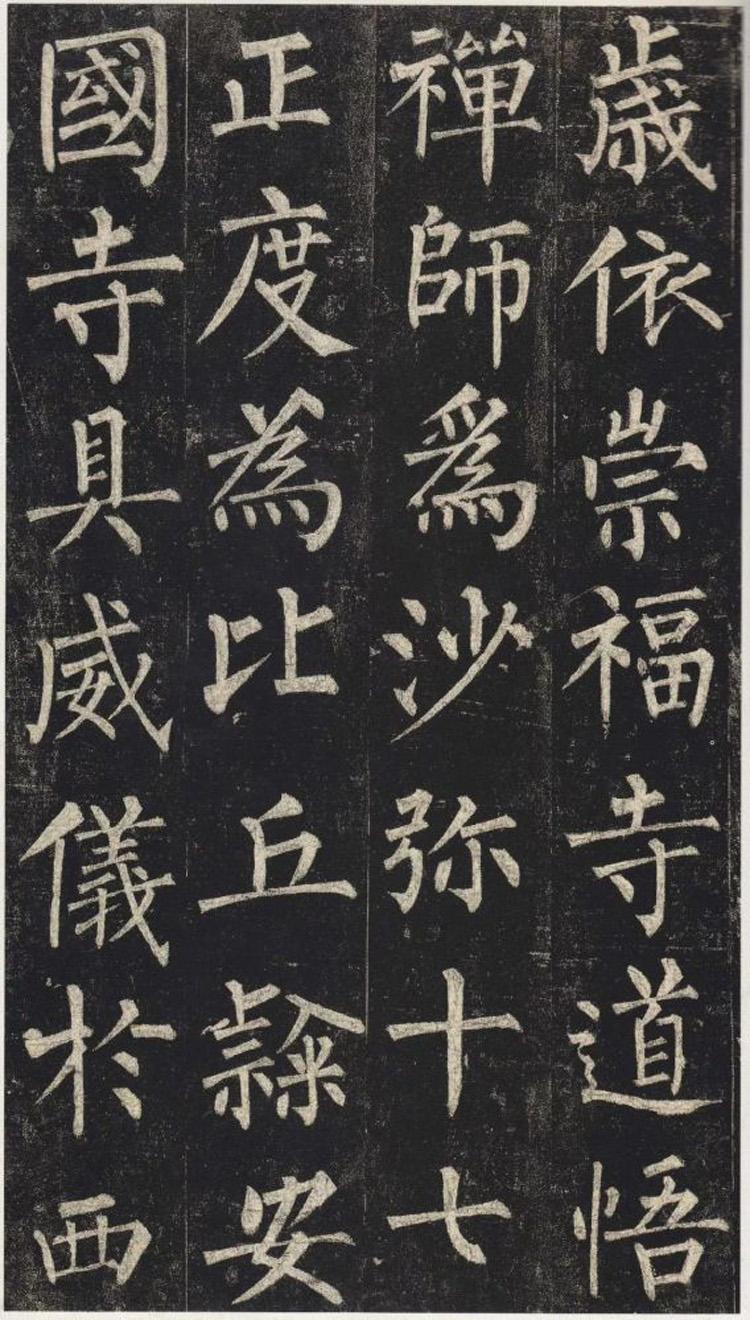 歲依崇福寺道悟
禪師爲沙弥十七
正度為比丘𨽻安
國寺具威儀於西